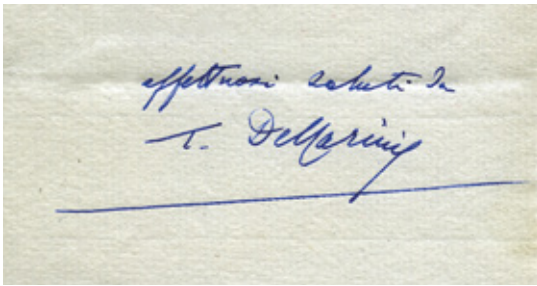 affettuosi saluti da
T. De Marinis